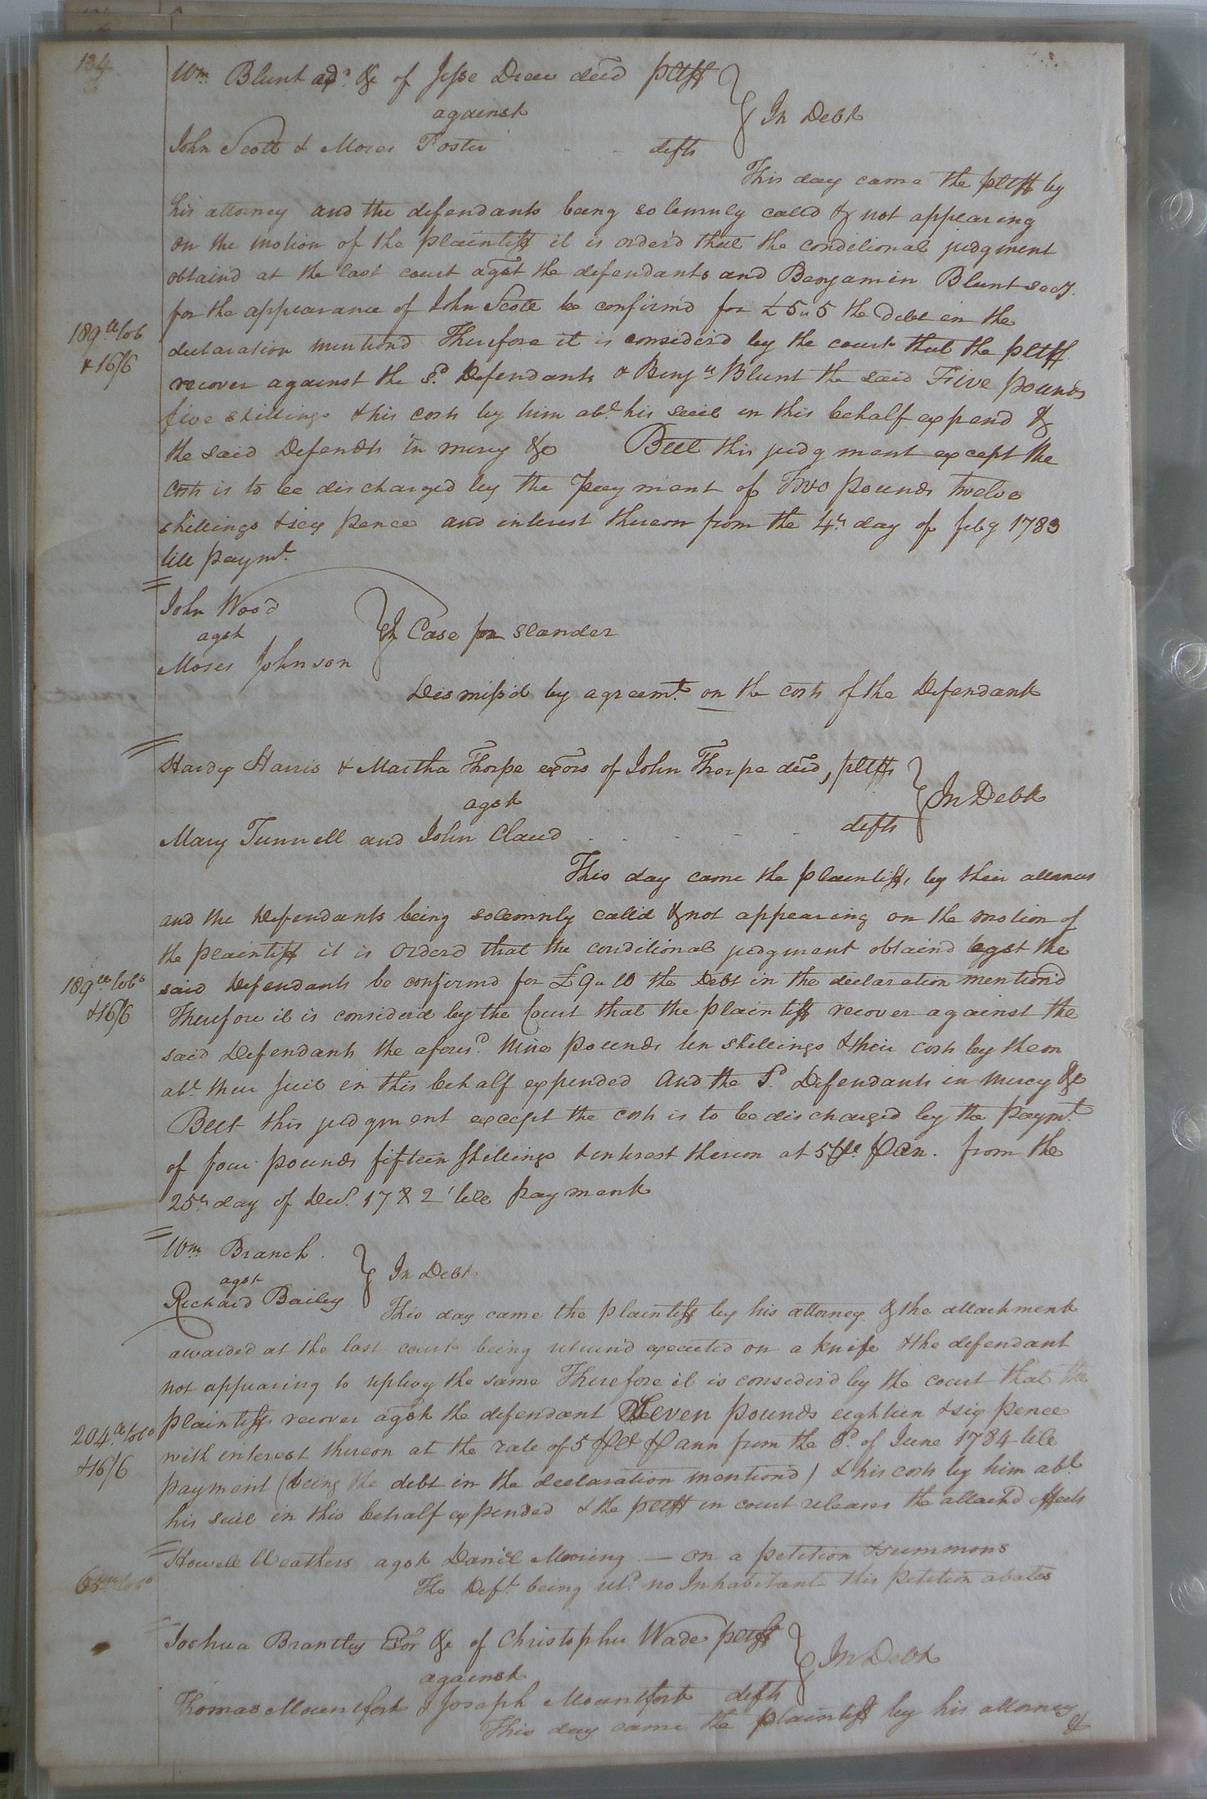 134
Wm Blunt ad.r &c of Jesse Drew dec'd pltff
against
In Debt
John Scott & Moses Foster defts
This day came the pltff by
his attorney and the defendants being solemnly call'd & not appearing
on the motion of the plaintiff it is order'd that the conditional judgment
obtaind at the last court agst the defendants and Benjamin Blunt secy.
for the appearance of John Scott be confirm'd for £5 " 5 the Debt in the
189 lb tob
declaration mentiond Therefore it is consider'd by the court that the pltff
& 16/6
recover against the sd. Defendants & Benjn Blunt the said Five pounds
five shillings & his costs by him abt. his suit in this behalf expend &
the said Defendts in mercy &c But this judgment except the
Costs is to be discharged by the payment of Two pounds twelve
shillings & six pence and interest thereon from the 4th day of feby 1783
till paymt.
John Wood
agst
In Case for slander
Moses Johnson
Dismiss'd by agreemt. on the costs of the Defendant
Hardy Harris & Martha Thorpe exors of John Thorpe dec'd, pltffs
agst
In Debt
defts
Mary Tunnell and John Claud
This day came the plaintiffs by their
and the Defendants being solemnly call'd & not appearing on the motion of
the plaintiff it is Orderd that the conditional judgment obtaind agst the
189 lb tobo
said Defendants be confirmd for £9 " 10 the Debt in the declaration mention'd
& 16/6
Therefore it is considerd by the Court that the plaintiff recover against the
said Defendants the afores.d Nine pounds ten shillings & their costs by them
abt. their suit in this behalf expended And the sd. Defendants in mercy &c
But this judgment except the costs is to be discharged by the paymt.
of four pounds fifteen shillings & interest thereon at 5 pr. Ct pr an. from the
25th day of Decr. 1782 till payment
Wm Branch
agst
In Debt
Richard Bailey
This day came the plaintiff by his attorney & the attachment
awarded at the last court being returnd executed on a knife & the defendant
not appearing to replevy the same Therefore it is consider'd by the court that the
204 lb tobo
plaintiff recover agst the defendant Seven pounds eighteen & six pence
& 16/6
with interest thereon at the rate of 5 pr Ct pr ann from the of June 1784 till
payment (being the debt in the declaration mention'd) & his costs by him abt.
his suit in this behalf expended & the pltff in court releases the attach'd effects
Howell Weathers agst Daniel Mooring — on a petition & summons
The Deft. being retd. no Inhabitant this petition abates
Joshua Brantley Exor &c of Christopher Wade pltff
against
In Debt
Thomas Mountfort & Joseph Mountfort defts
This day came the plaintiff by his attorney
&